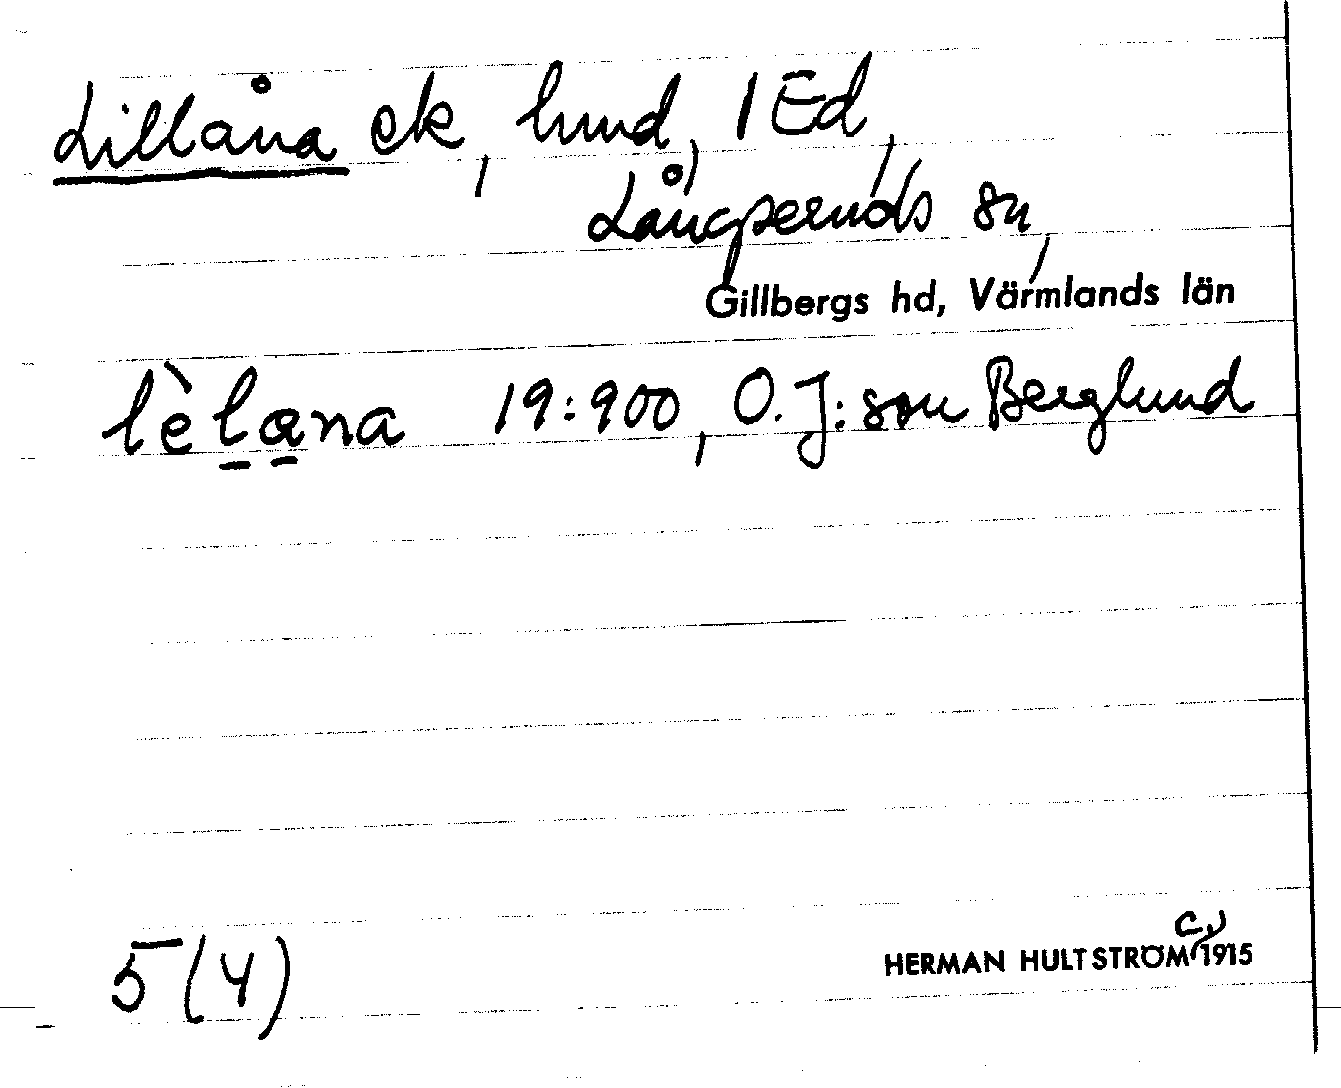 Lillåna ek, hmd, 1 Ed,
Långseruds sn,
Gillbergs hd, Värmlands län
lèlana 19:900, O. J:son Berglund
5(4)
HERMAN HULTSTRÖM c. 1915